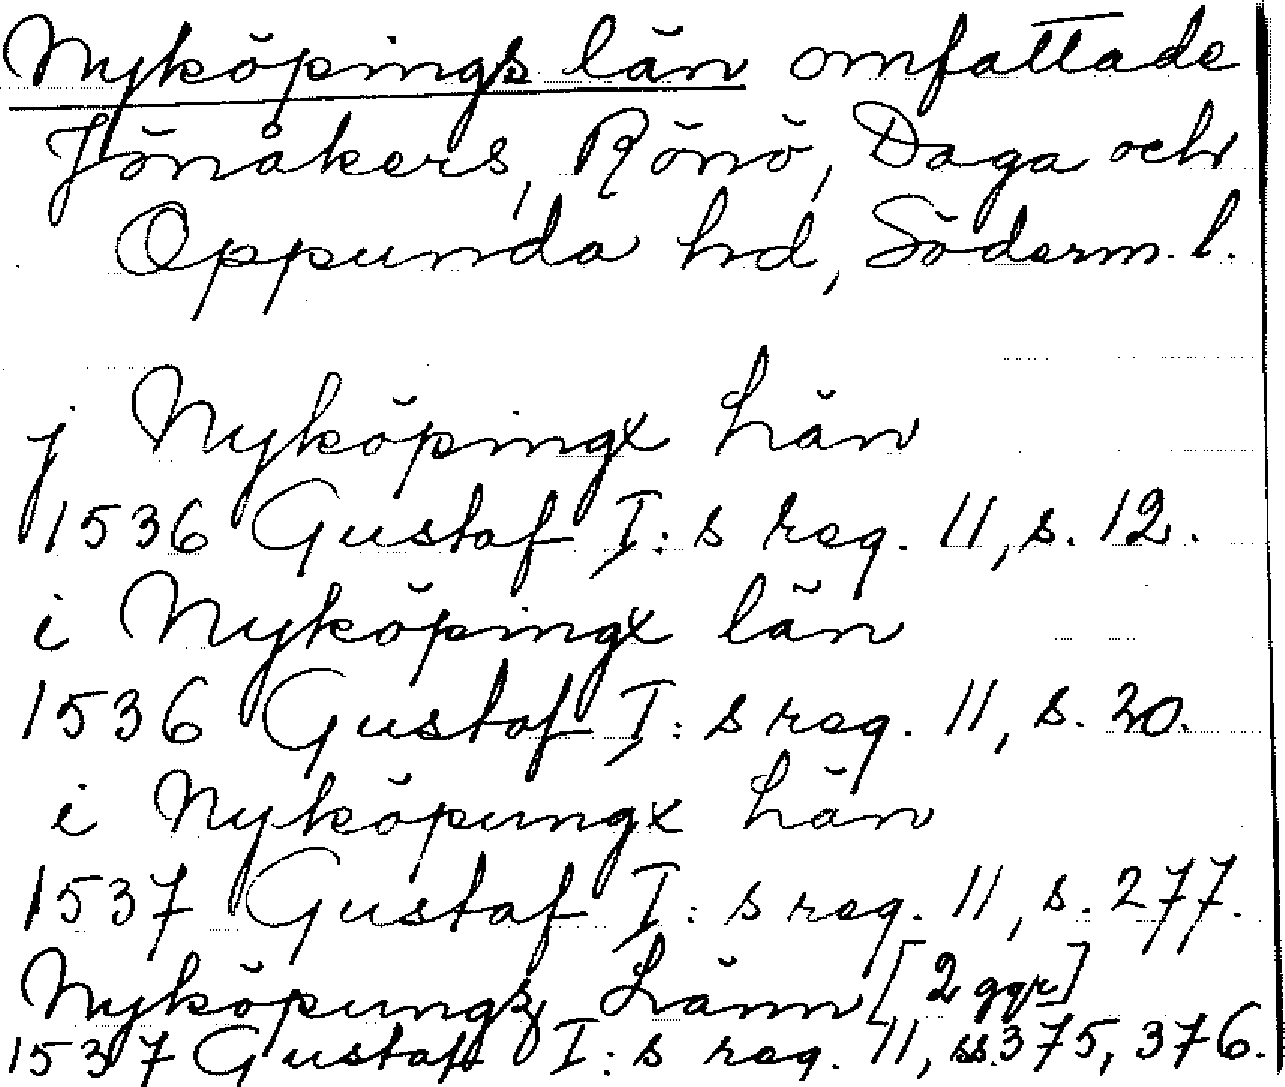 Nyköpings län omfattade
Jönåkers, Rönö, Daga och
Oppunda hd, Söderm. l.
j Nyköpingx Län
1536 Gustaf I:s reg. 11, s. 12.
i Nyköpingx län
1536 Gustaf I:s reg. 11, s. 20.
i Nyköpungx Län
1537 Gustaf I:s reg. 11, s. 277.
Nyköpungz Länn [2 ggr]
1537 Gustaf I:s reg. 11, ss. 375, 376.